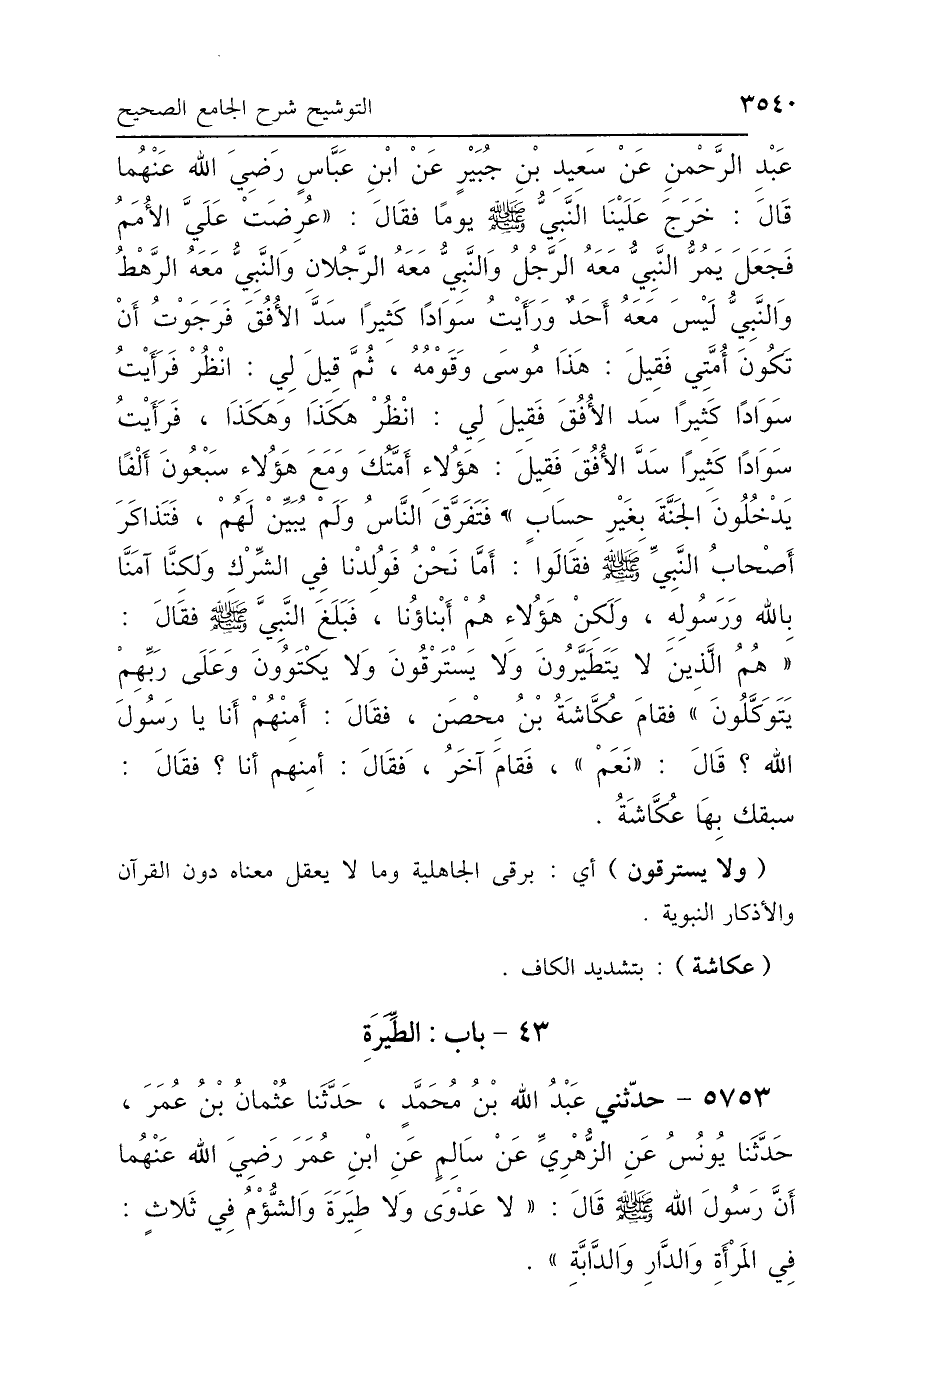 ٣٥٤٠ التوشيح شرح الجامع الصحيح
عَبْدِ الرَّحْمنِ عَنْ سَعِيدِ بْنِ جُبَيْرٍ عَنْ ابْنِ عَبَّاسٍ رَضِيَ الله عَنْهُما
قَالَ : خَرَجَ عَلَيْنَا النَّبِيُّ ﷺ يومًا فقَالَ : «عُرِضَتْ عَلَيَّ الأُمَمُ
فَجَعَلَ يَمرُّ النَّبِيُّ مَعَهُ الرَّجُلُ وَالنَّبِيُّ مَعَهُ الرَّجُلانِ وَالنَّبِيُّ مَعَهُ الرَّهْطُ
وَالنَّبِيُّ لَيْسَ مَعَهُ أَحَدٌ وَرَأَيْتُ سَوَادًا كَثِيرًا سَدَّ الأُفُقَ فَرَجَوْتُ أَنْ
تَكُونَ أُمَّتِي فَقِيلَ : هَذَا مُوسَى وَقَوْمُهُ ، ثُمَّ قِيلَ لِي : انْظُرْ فَرَأَيْتُ
سَوَادًا كَثِيرًا سَد الأُفُقَ فَقِيلَ لِي : انْظُرْ هَكَذَا وَهَكَذَا ، فَرَأَيْتُ
سَوَادًا كَثِيرًا سَدَّ الأُفُقَ فَقِيلَ : هَؤُلاءِ أمَّتُكَ وَمَعَ هَؤُلاءِ سَبْعُونَ أَلْفًا
يَدْخُلُونَ الجَنَّةَ بِغَيْرِ حِسَابٍ » فَتَفَرَّقَ النَّاسُ وَلَمْ يُبَيِّنْ لَهُمْ ، فَتَذاكَرَ
أَصْحابُ النَّبِيِّ ﷺ فقَالَوا : أمَّا نَحْنُ فَوُلِدْنا فِي الشِّرْكِ وَلكنَّا آمَنَّا
بِالله وَرَسُولِهِ ، وَلَكِنْ هَؤُلاءِ هُمْ أَبْناؤُنا ، فَبَلَغَ النَّبِيَّ ﷺ فقَالَ :
« هُمُ الَّذِينَ لا يَتَطَيَّرُونَ وَلا يَسْتَرْقُونَ وَلا يَكْتَوُونَ وَعَلَى رَبِّهِمْ
يَتَوَكَّلُونَ » فقامَ عُكَّاشَةُ بْنُ مِحْصَنٍ ، فقَالَ : أمِنْهُمْ أنا يا رَسُولَ
الله ؟ قَالَ : «نَعَمْ» ، فَقامَ آخَرُ ، فَقالَ : أمنهم أنا ؟ فقَالَ :
سبقك بِهَا عُكَّاشَةُ .
( ولا يسترقون ) أي : برقى الجاهلية وما لا يعقل معناه دون القرآن
والأذكار النبوية .
( عكاشة ) : بتشديد الكاف .
٤٣ - باب : الطِّيَرَةِ
٥٧٥٣ - حدّثني عَبْدُ الله بْنُ مُحَمَّدٍ ، حَدَّثَنا عثْمانُ بْنُ عُمَرَ ،
حَدَّثَنا يُونُسُ عَنِ الزُّهْرِيِّ عَنْ سَالِمٍ عَنِ ابْنِ عُمَرَ رَضِيَ الله عَنْهُما
أنَّ رَسُولَ الله ﷺ قَالَ : « لا عَدْوَى وَلا طِيَرَةَ وَالشُّؤْمُ فِي ثَلاثٍ :
فِي المَرْأَةِ وَالدَّارِ وَالدَّابَّةِ » .